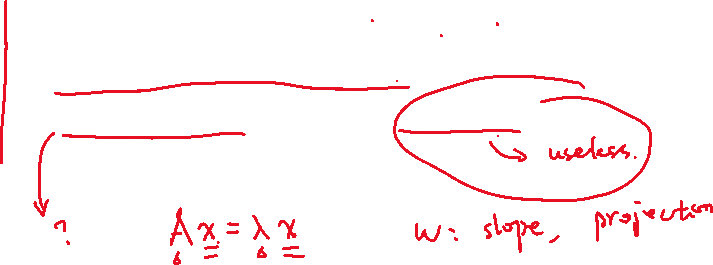 useless.
? Ax = λx w: slope, projection